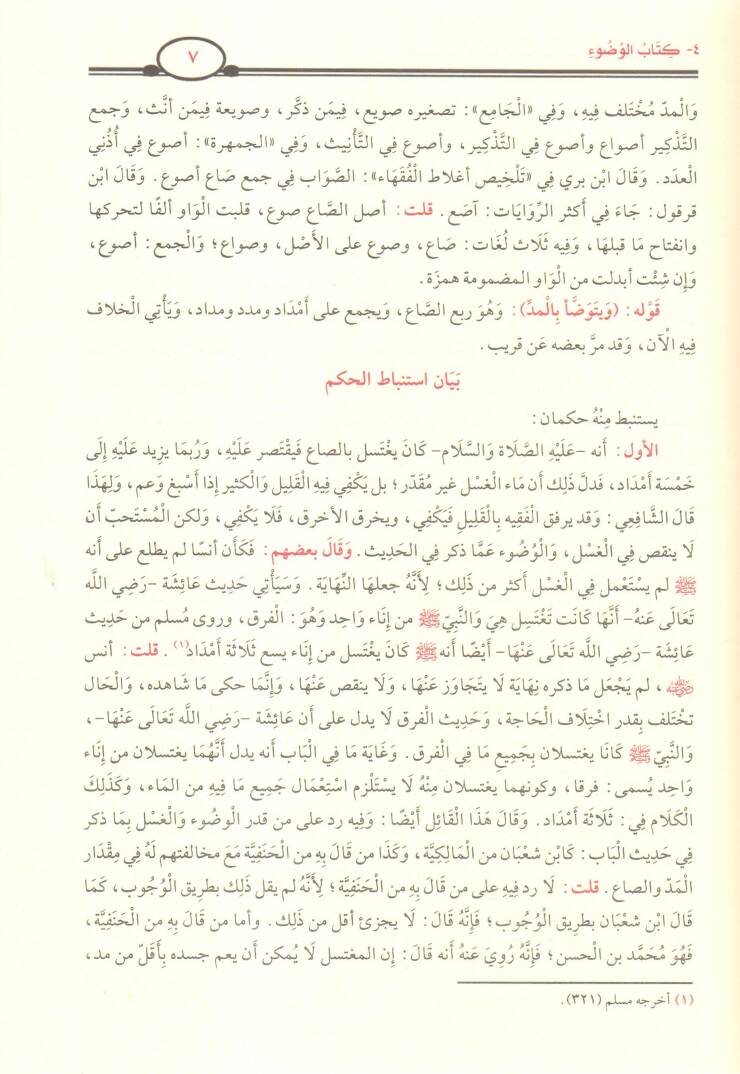 ٤- كِتَابُ الوُضُوءِ
٧
وَالْمدّ مُخْتَلف فِيهِ، وَفِي «الْجَامِع»: تصغيره صويع، فِيمَن ذكَّر، وصويعة فِيمَن أنَّث، وَجمع
التَّذْكِير أصواع وأصوع فِي التَّذْكِير، وأصوع فِي التَّأْنِيث، وَفِي «الجمهرة»: أصوع فِي أُذُنِي
الْعدَد. وَقَالَ ابْن بري فِي «تَلْخِيص أغلاط الْفُقَهَاء»: الصَّوَاب فِي جمع صَاع أصوع. وَقَالَ ابْن
قرقول: جَاءَ فِي أكثر الرِّوَايَات: آصَع. قلت: أصل الصَّاع صوع، قلبت الْوَاو ألفًا لتحركها
وانفتاح مَا قبلهَا، وَفِيه ثَلَاث لُغَات: صَاع، وصوع على الأَصْل، وصواع؛ وَالْجمع: أصوع،
وَإِن شِئْت أبدلت من الْوَاو المضمومة همزَة.
قَوْله: (وَيتَوَضَّأ بِالْمدِّ): وَهُوَ ربع الصَّاع، وَيجمع على أَمْدَاد ومدد ومداد، وَيَأْتِي الْخلاف
فِيهِ الْآن، وَقد مرَّ بعضه عَن قريب.
بَيَان استنباط الحكم
يستنبط مِنْهُ حكمان:
الأول: أنه -عَلَيْهِ الصَّلَاة وَالسَّلَام- كَانَ يغْتَسل بالصاع فَيقْتَصر عَلَيْهِ، وَرُبمَا يزِيد عَلَيْهِ إِلَى
خَمْسَة أَمْدَاد، فَدلَّ ذَلِك أَن مَاء الْغسْل غير مُقَدّر؛ بل يَكْفِي فِيهِ الْقَلِيل وَالْكثير إِذا أَسْبغ وَعم، وَلِهَذَا
قَالَ الشَّافِعِي: وَقد يرفق الْفَقِيه بِالْقَلِيلِ فَيَكْفِي، ويخرق الأخرق، فَلَا يَكْفِي، وَلَكِن الْمُسْتَحبّ أَن
لَا ينقص فِي الْغسْل، وَالْوُضُوء عَمَّا ذكر فِي الحَدِيث. وَقَالَ بعضهم: فَكَأَن أنسًا لم يطلع على أنه
ﷺ لم يسْتَعْمل فِي الْغسْل أكثر من ذَلِك؛ لِأَنَّهُ جعلهَا النِّهَايَة. وَسَيَأْتِي حَدِيث عَائِشَة -رَضِي اللَّه
تَعَالَى عَنهُ- أَنَّهَا كَانَت تَغْتَسِل هِيَ وَالنَّبِيّ ﷺ من إِنَاء وَاحِد وَهُوَ: الْفرق، وروى مُسلم من حَدِيث
عَائِشَة -رَضِي اللَّه تَعَالَى عَنْهَا- أَيْضًا أنه ﷺ كَانَ يغْتَسل من إِنَاء يسع ثَلَاثَة أَمْدَاد(١). قلت: أنس
رضي الله عنه، لم يَجْعَل مَا ذكره نِهَايَة لَا يتَجَاوَز عَنْهَا، وَلَا ينقص عَنْهَا، وَإِنَّمَا حكى مَا شاهده، وَالْحَال
تخْتَلف بِقدر اخْتِلَاف الْحَاجة، وَحَدِيث الْفرق لَا يدل على أَن عَائِشَة -رَضِي اللَّه تَعَالَى عَنْهَا-،
وَالنَّبِيّ ﷺ كَانَا يغتسلان بِجَمِيعِ مَا فِي الْفرق. وَغَايَة مَا فِي الْبَاب أنه يدل أَنَّهُمَا يغتسلان من إِنَاء
وَاحِد يُسمى: فرقا، وكونهما يغتسلان مِنْهُ لَا يسْتَلْزم اسْتِعْمَال جَمِيع مَا فِيهِ من المَاء، وَكَذَلِكَ
الْكَلَام فِي: ثَلَاثَة أَمْدَاد. وَقَالَ هَذَا الْقَائِل أَيْضًا: وَفِيه رد على من قدر الْوضُوء وَالْغسْل بِمَا ذكر
فِي حَدِيث الْبَاب: كَابْن شعْبَان من الْمَالِكِيَّة، وَكَذَا من قَالَ بِهِ من الْحَنَفِيَّة مَعَ مخالفتهم لَهُ فِي مِقْدَار
الْمَدّ والصاع. قلت: لَا رد فِيهِ على من قَالَ بِهِ من الْحَنَفِيَّة؛ لِأَنَّهُ لم يقل ذَلِك بطرِيق الْوُجُوب، كَمَا
قَالَ ابْن شعْبَان بطرِيق الْوُجُوب؛ فَإِنَّهُ قَالَ: لَا يجزئ أقل من ذَلِك. وأما من قَالَ بِهِ من الْحَنَفِيَّة،
فَهُوَ مُحَمَّد بن الْحسن؛ فَإِنَّهُ رُوِيَ عَنهُ أنه قَالَ: إِن المغتسل لَا يُمكن أَن يعم جسده بِأَقَلّ من مد،
(١) أخرجه مسلم (٣٢١).